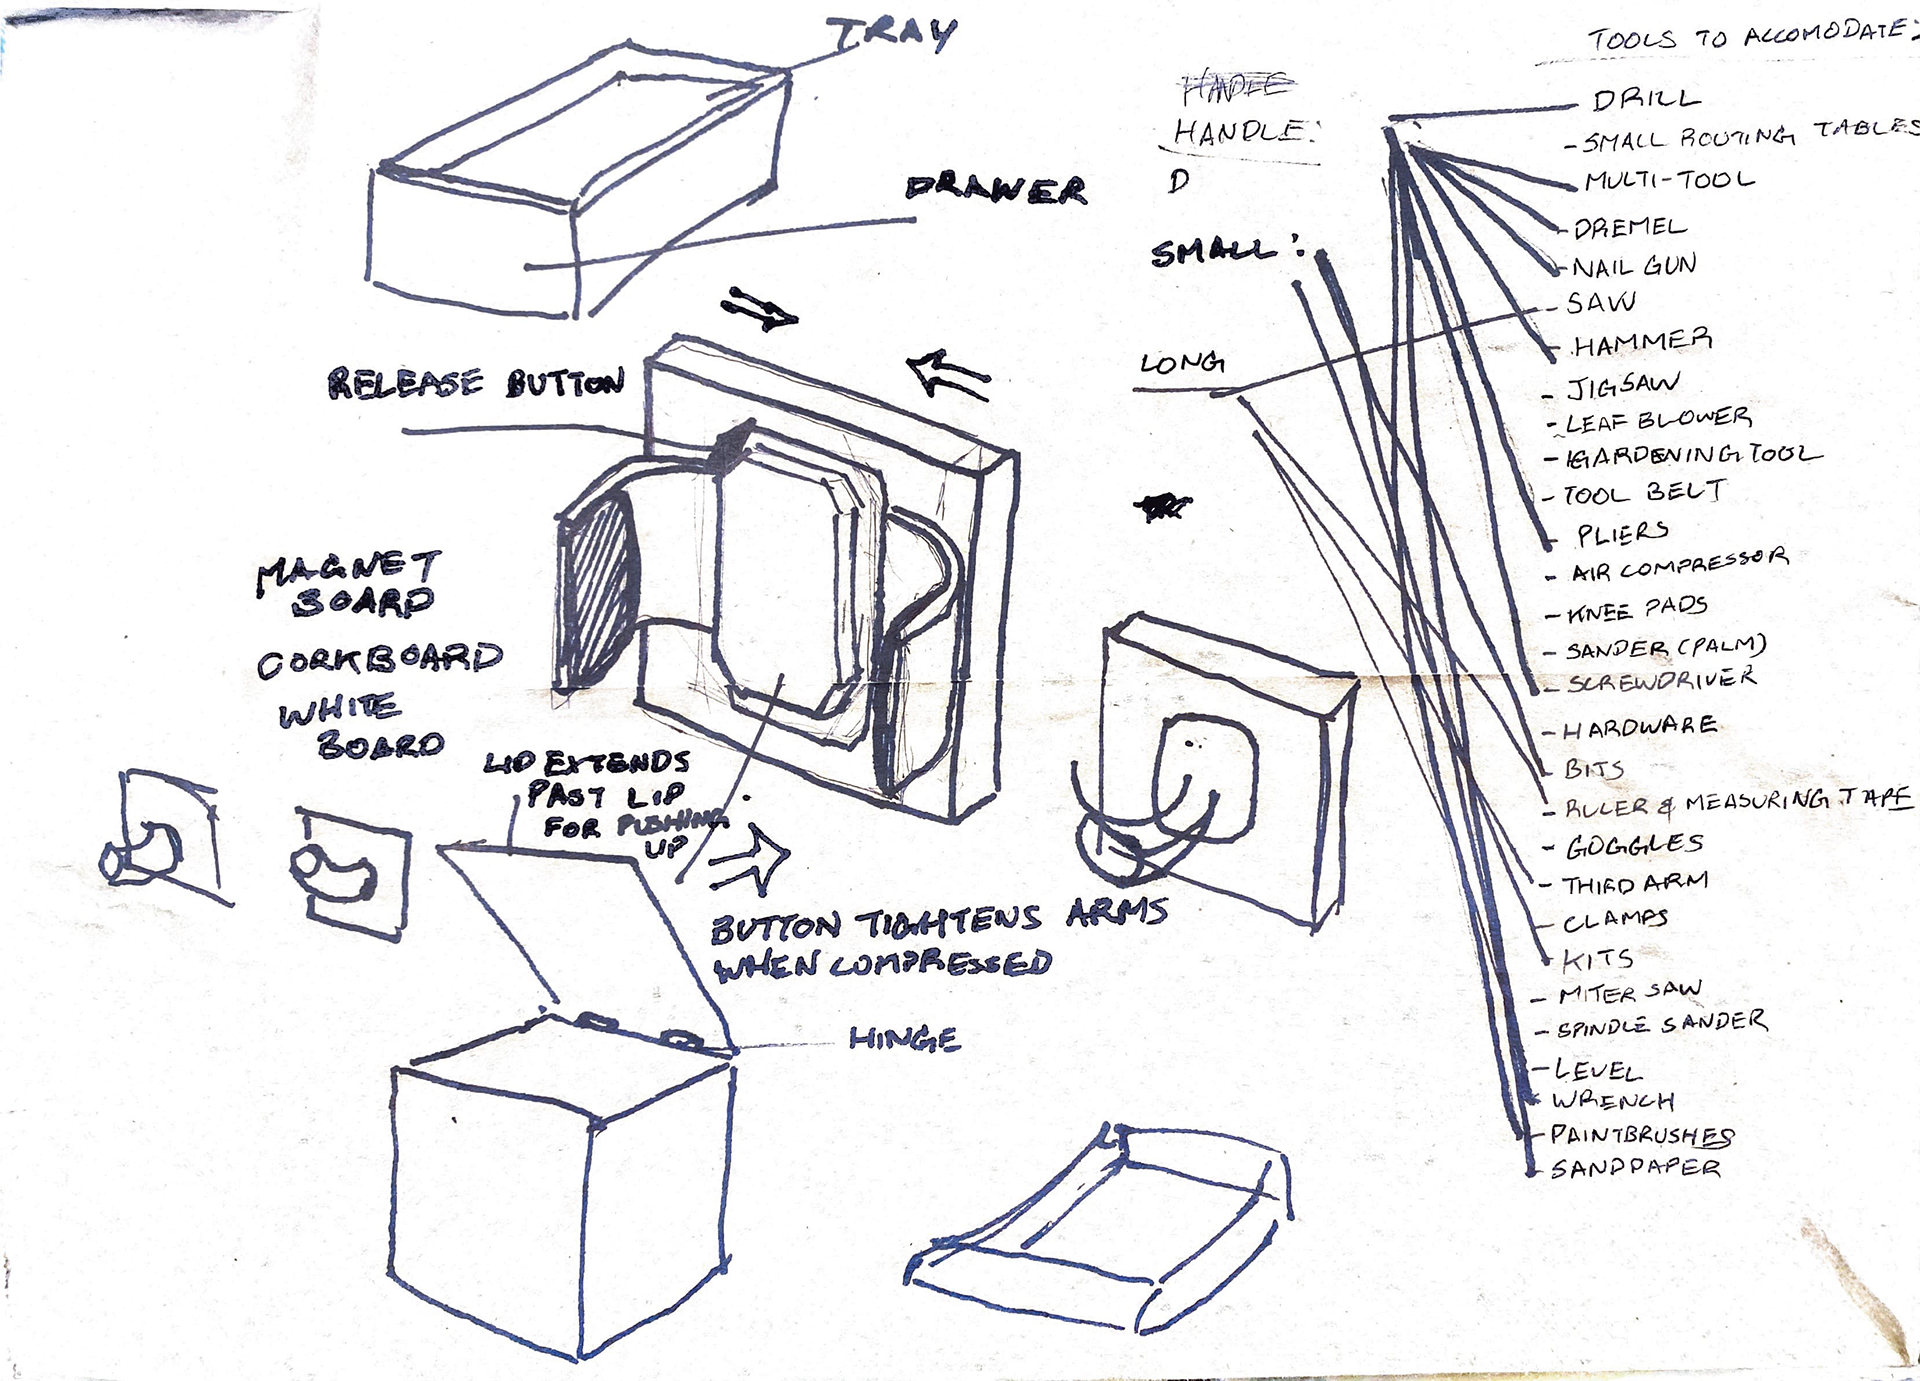 TRAY
DRAWER
RELEASE BUTTON
MAGNET
BOARD
CORKBOARD
WHITE
BOARD
LID EXTENDS
PAST LIP
FOR PUSHING
UP
BUTTON TIGHTENS ARMS
WHEN COMPRESSED
HINGE
HANDLE:
D
SMALL:
LONG
TOOLS TO ACCOMODATE:
DRILL
- SMALL ROUTING TABLES
- MULTI-TOOL
- DREMEL
- NAIL GUN
- SAW
- HAMMER
- JIGSAW
- LEAF BLOWER
- GARDENING TOOL
- TOOL BELT
- PLIERS
- AIR COMPRESSOR
- KNEE PADS
- SANDER (PALM)
- SCREWDRIVER
- HARDWARE
- BITS
- RULER & MEASURING TAPE
- GOGGLES
- THIRD ARM
- CLAMPS
- KITS
- MITER SAW
- SPINDLE SANDER
- LEVEL
- WRENCH
- PAINTBRUSHES
- SANDPAPER